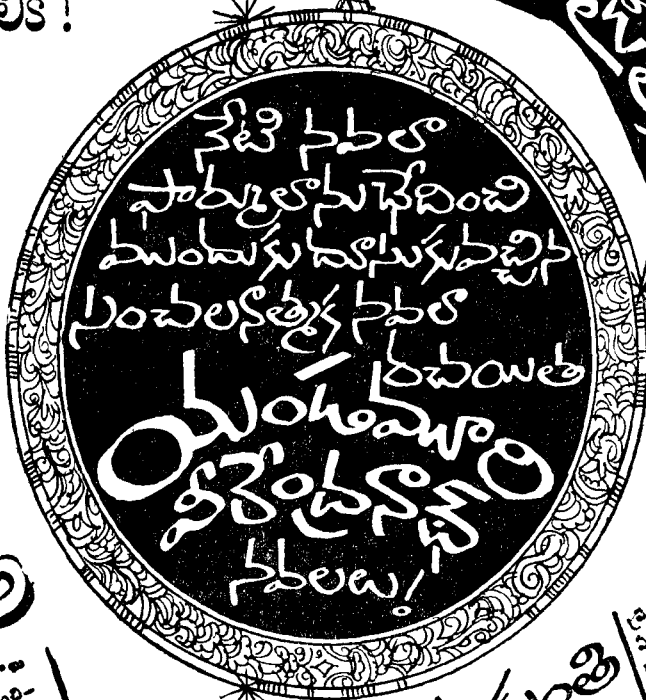 నేటి నవలా
ఫార్ములాను ఛేదించి
ముందుకు దూసుకువచ్చిన
సంచలనాత్మక నవలా
రచయిత
యండమూరి
వీరేంద్రనాథ్
నవలలు!